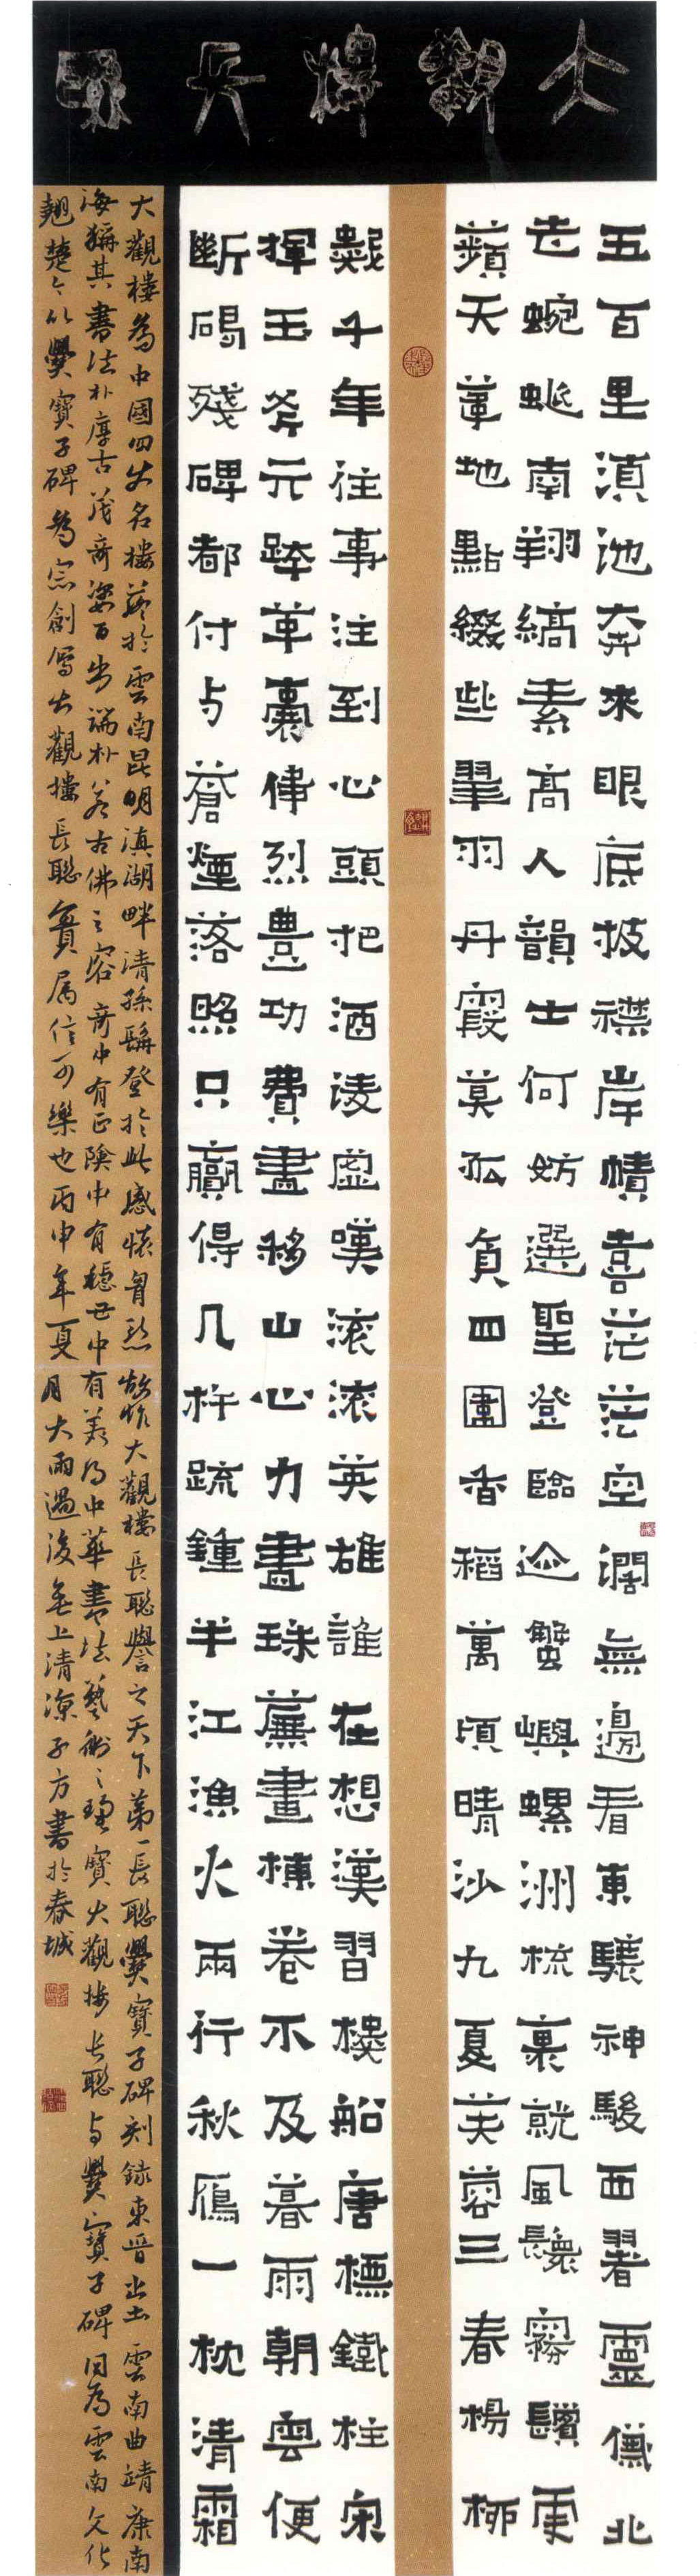 大觀樓長聯
五百里滇池奔來眼底披襟岸幘喜茫茫空闊無邊看東驤神駿西翥靈儀北
走蜿蜒南翔縞素高人韻士何妨選聖登臨趁蟹嶼螺洲梳裹就風鬟霧鬢更
蘋天葦地點綴些翠羽丹霞莫孤負四圍香稻萬頃晴沙九夏芙蓉三春楊柳
數千年往事注到心頭把酒凌虛嘆滾滾英雄誰在想漢習樓船唐標鐵柱宋
揮玉斧元跨革囊偉烈豐功費盡移山心力盡珠簾畫棟卷不及暮雨朝雲便
斷碣殘碑都付与蒼煙落照只贏得几杵疏鐘半江漁火兩行秋雁一枕清霜
大觀樓為中國四大名樓於雲南昆明滇湖畔清孫髯登於此感懷作大觀樓長聯譽之天下第一長聯爨寶子碑刻録東晉出土雲南曲靖康南
海稱其書法朴厚古茂奇姿百出端朴若古佛之容奇中有正險中有穩丑中有美為中華書法藝術之瑰寶大觀樓長聯与爨寶子碑同為雲南文化
翹楚今以爨寶子碑為宗創寫大觀樓長聯實屬信可樂也丙申年夏月大雨過後無上清涼子方書於春城